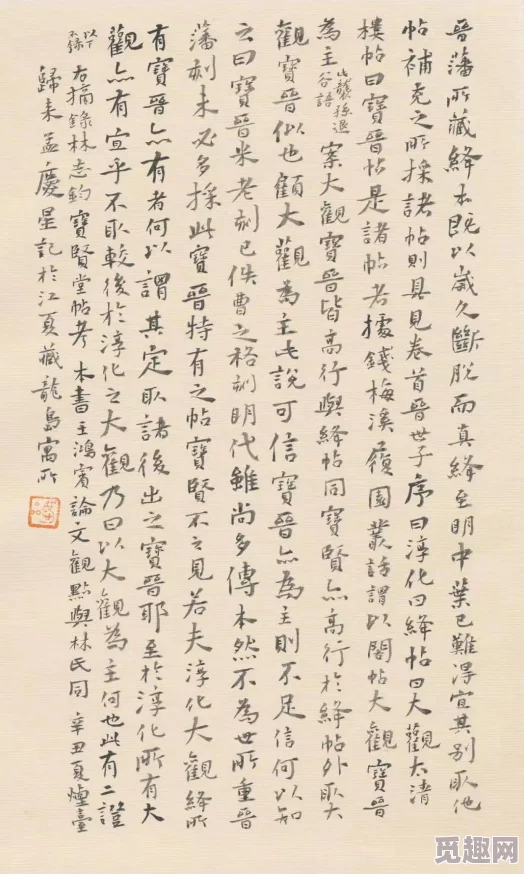 晉藩所藏絳本既以歲久斷脫而真絳至明中葉已難得宜其別取他
帖補充之所採諸帖則具見卷首晉世子序曰淳化曰絳帖曰大觀太清
樓帖曰寶晉帖是諸帖者據錢梅溪履園叢話謂以閣帖大觀寶晉
為主此襲孫退谷語案大觀寶晉皆高行與絳帖同寶賢亦高行於絳帖外取大
觀寶晉似也顧大觀為主此說可信寶晉亦為主則不足信何以知
云曰寶晉米老刻已佚曹之格刻明代雖尚多傳本然不為世所重晉
藩刻未必多採此寶晉特有之帖寶賢不之見若夫淳化大觀絳所
有寶晉亦有者何以謂其定取諸後出之寶晉耶至於淳化所有大
觀亦有宜乎不取較後於淳化之大觀乃曰以大觀為主何也此有二證
以下不錄
右摘錄林志鈞寶賢堂帖考 本書王鴻賓論文觀點與林氏同 辛丑夏煙臺
歸來孟慶星記於江夏藏龍島寓所
覓趣网